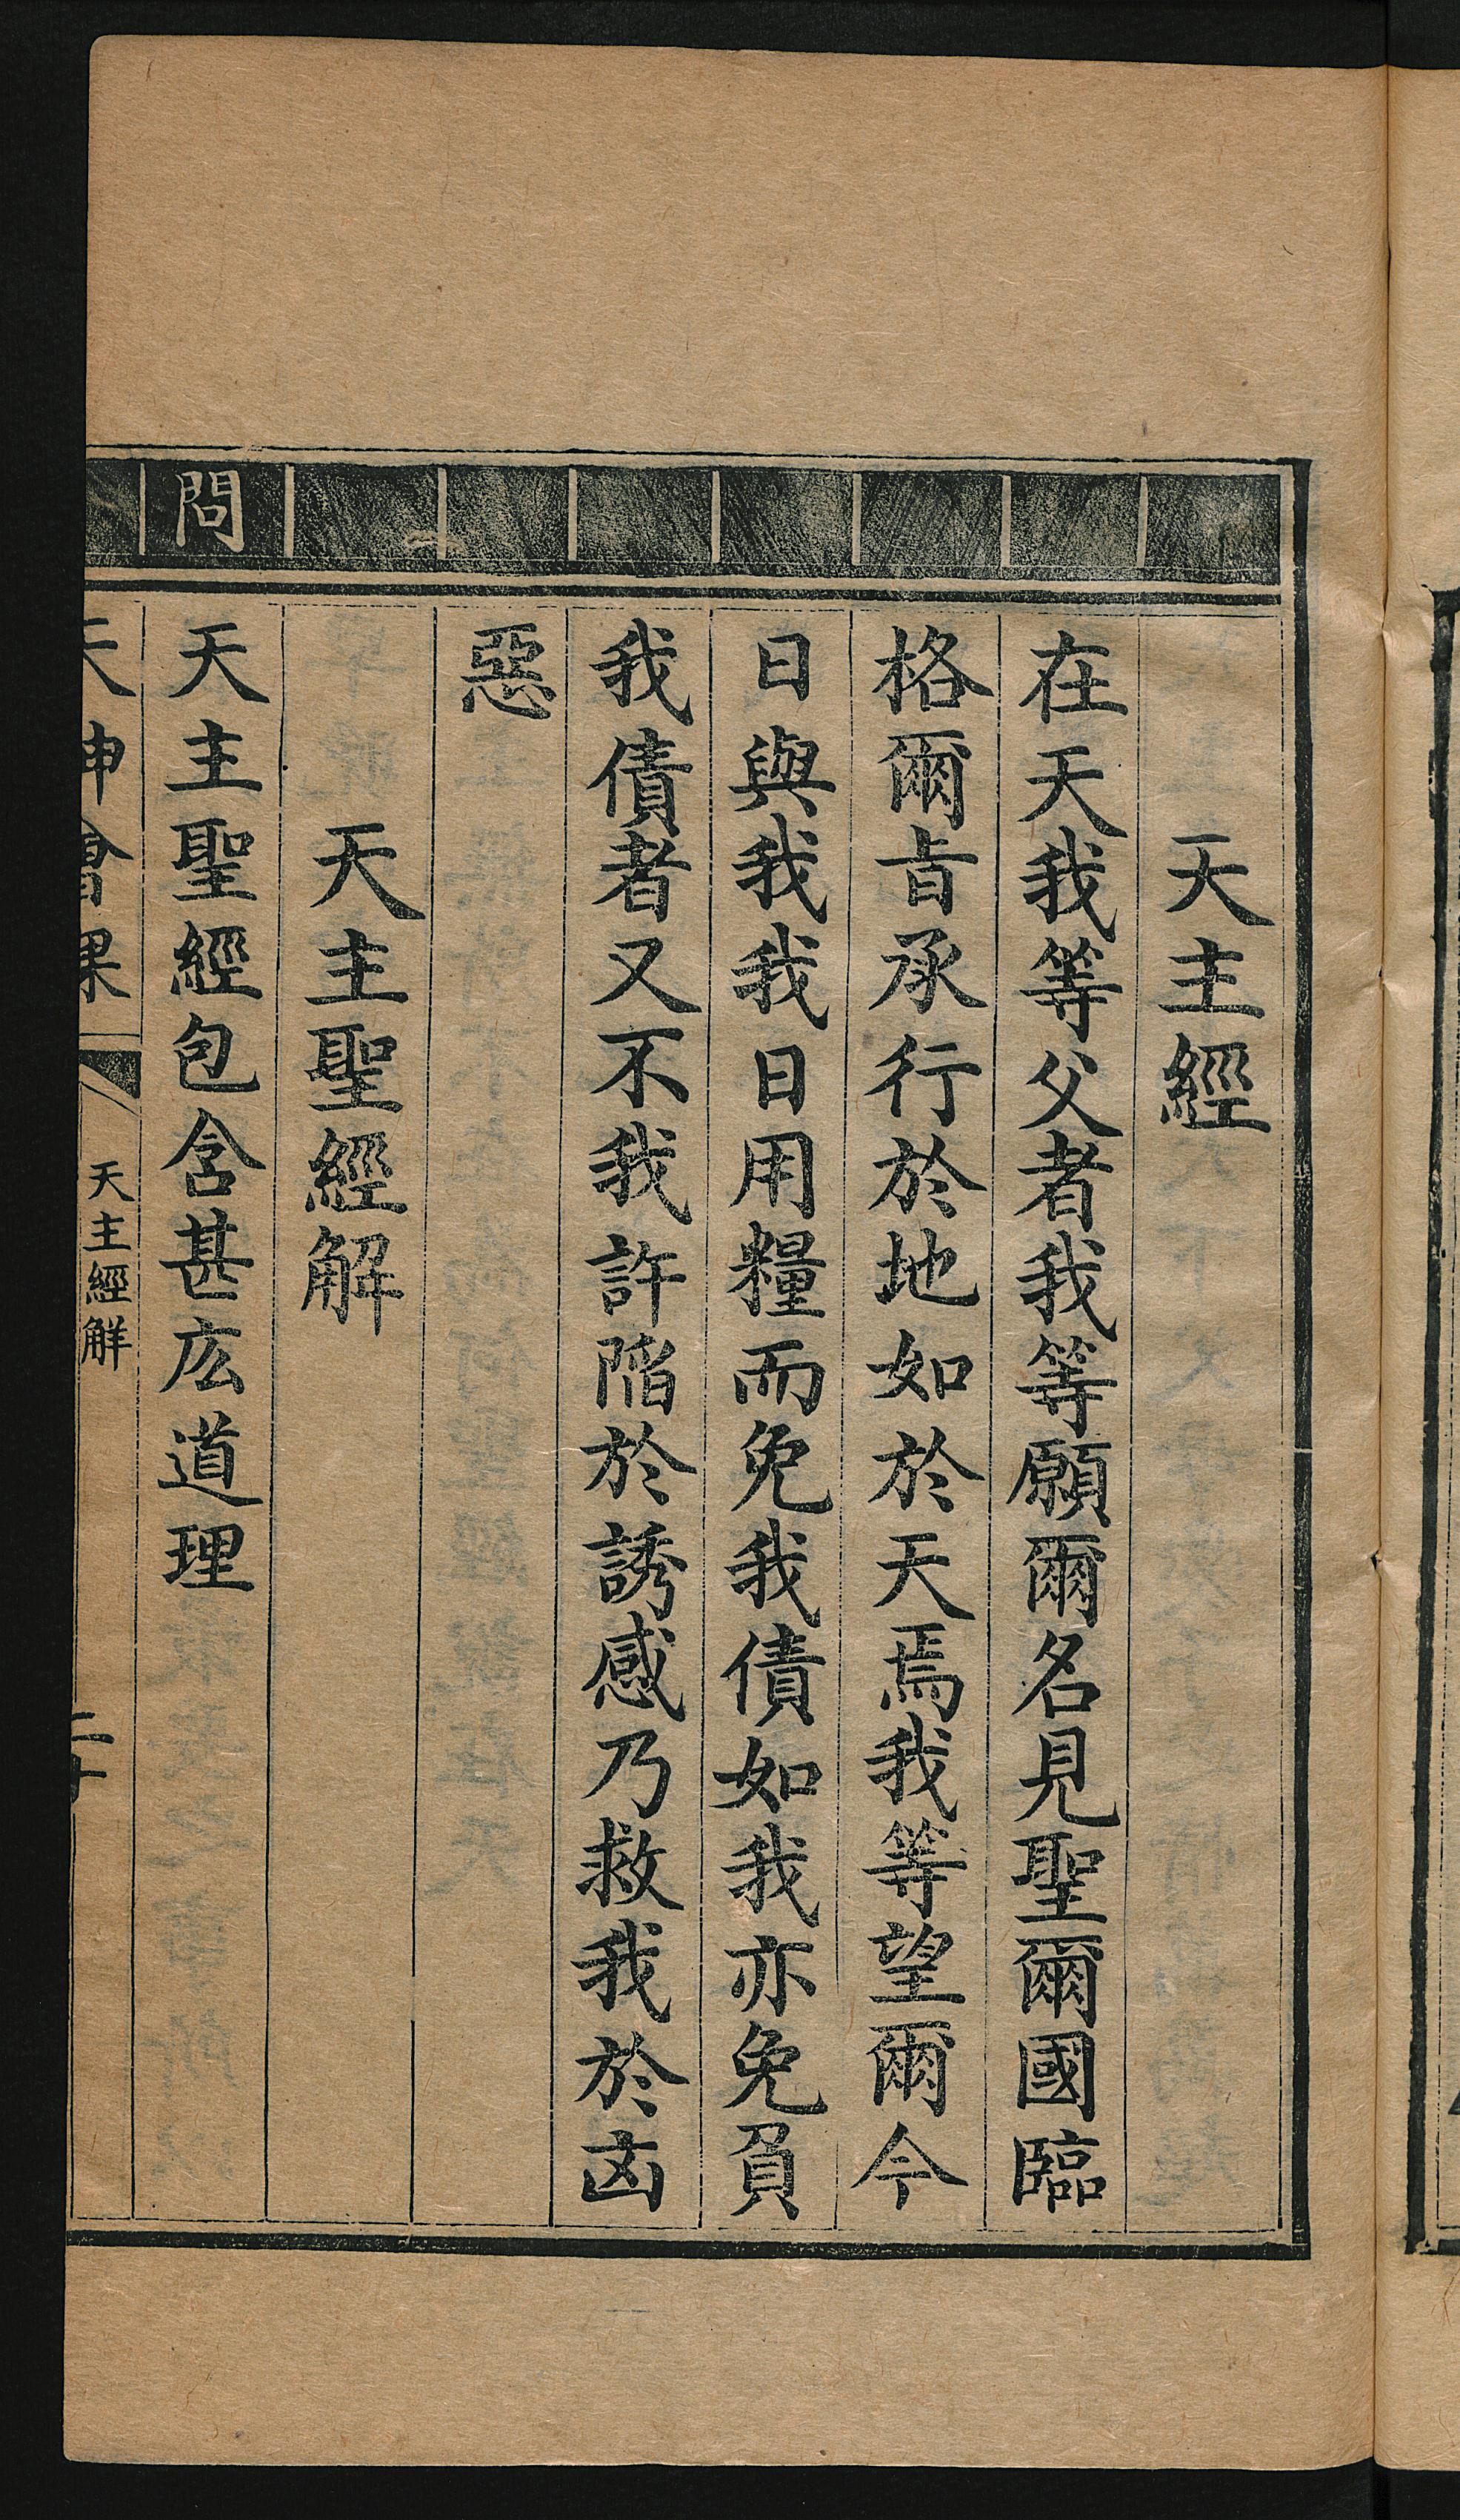 天主經
在天我等父者我等願爾名見聖爾國臨
格爾旨承行於地如於天焉我等望爾今
日與我我日用糧而免我債如我亦免負
我債者又不我許陷於誘感乃救我於凶
惡
天主聖經解
問
天主聖經包含甚庅道理
天神會課
天主經解